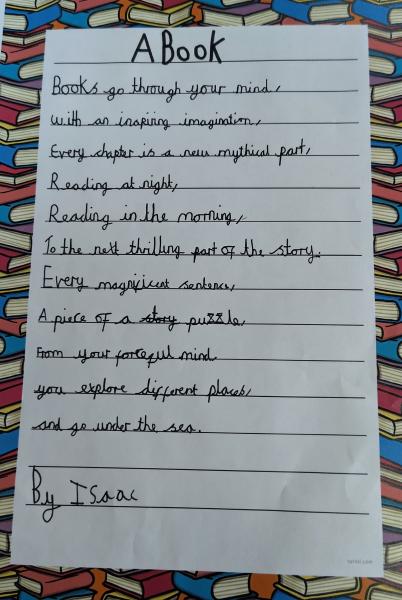 A Book
Books go through your mind,
with an inspiring imagination,
Every chapter is a new mythical part,
Reading at night,
Reading in the morning,
To the next thrilling part of the story.
Every magnificent sentence,
A piece of a story puzzle,
From your forceful mind.
you explore different places,
and go under the sea.
By Isaac